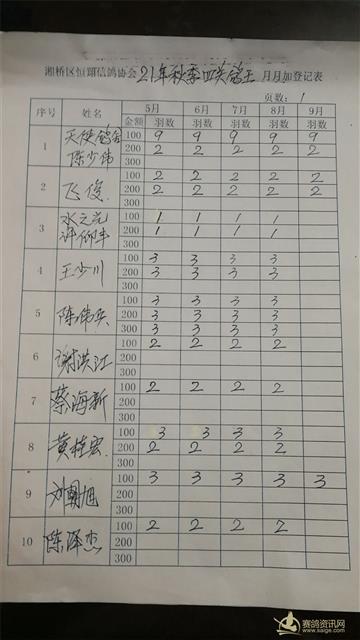 湘桥区恒翔信鸽协会21年秋季四关鸽王月月加登记表
页数：1
序号 姓名 5月 6月 7月 8月 9月
金额 羽数 羽数 羽数 羽数 羽数
1 天使鸽舍 陈少伟 100 9 9 9 9 9
200 2 2 2 2 2
300
2 飞俊 100 2 2 2 2 2
200 2 2 2 2 2
300
3 100 1 1 1 1
200 1 1 1 1
300
4 王少川 100 3 3 3 3
200 3 3 3 3
300
5 100 3 3 3 3
200 3 3 3 3
300 3 3 3 3
6 谢洪江 100 2 2 2 2
200
300
7 蔡海新 100 2 2 2 2
200
300
8 黄桂宏 100 3 3 3 3
200 2 2 2 2
300
9 刘朝旭 100 3 3 3 3 3
200
300
10 陈泽杰 100 2 2 2 2
200
300
赛鸽资讯网
www.saige.com